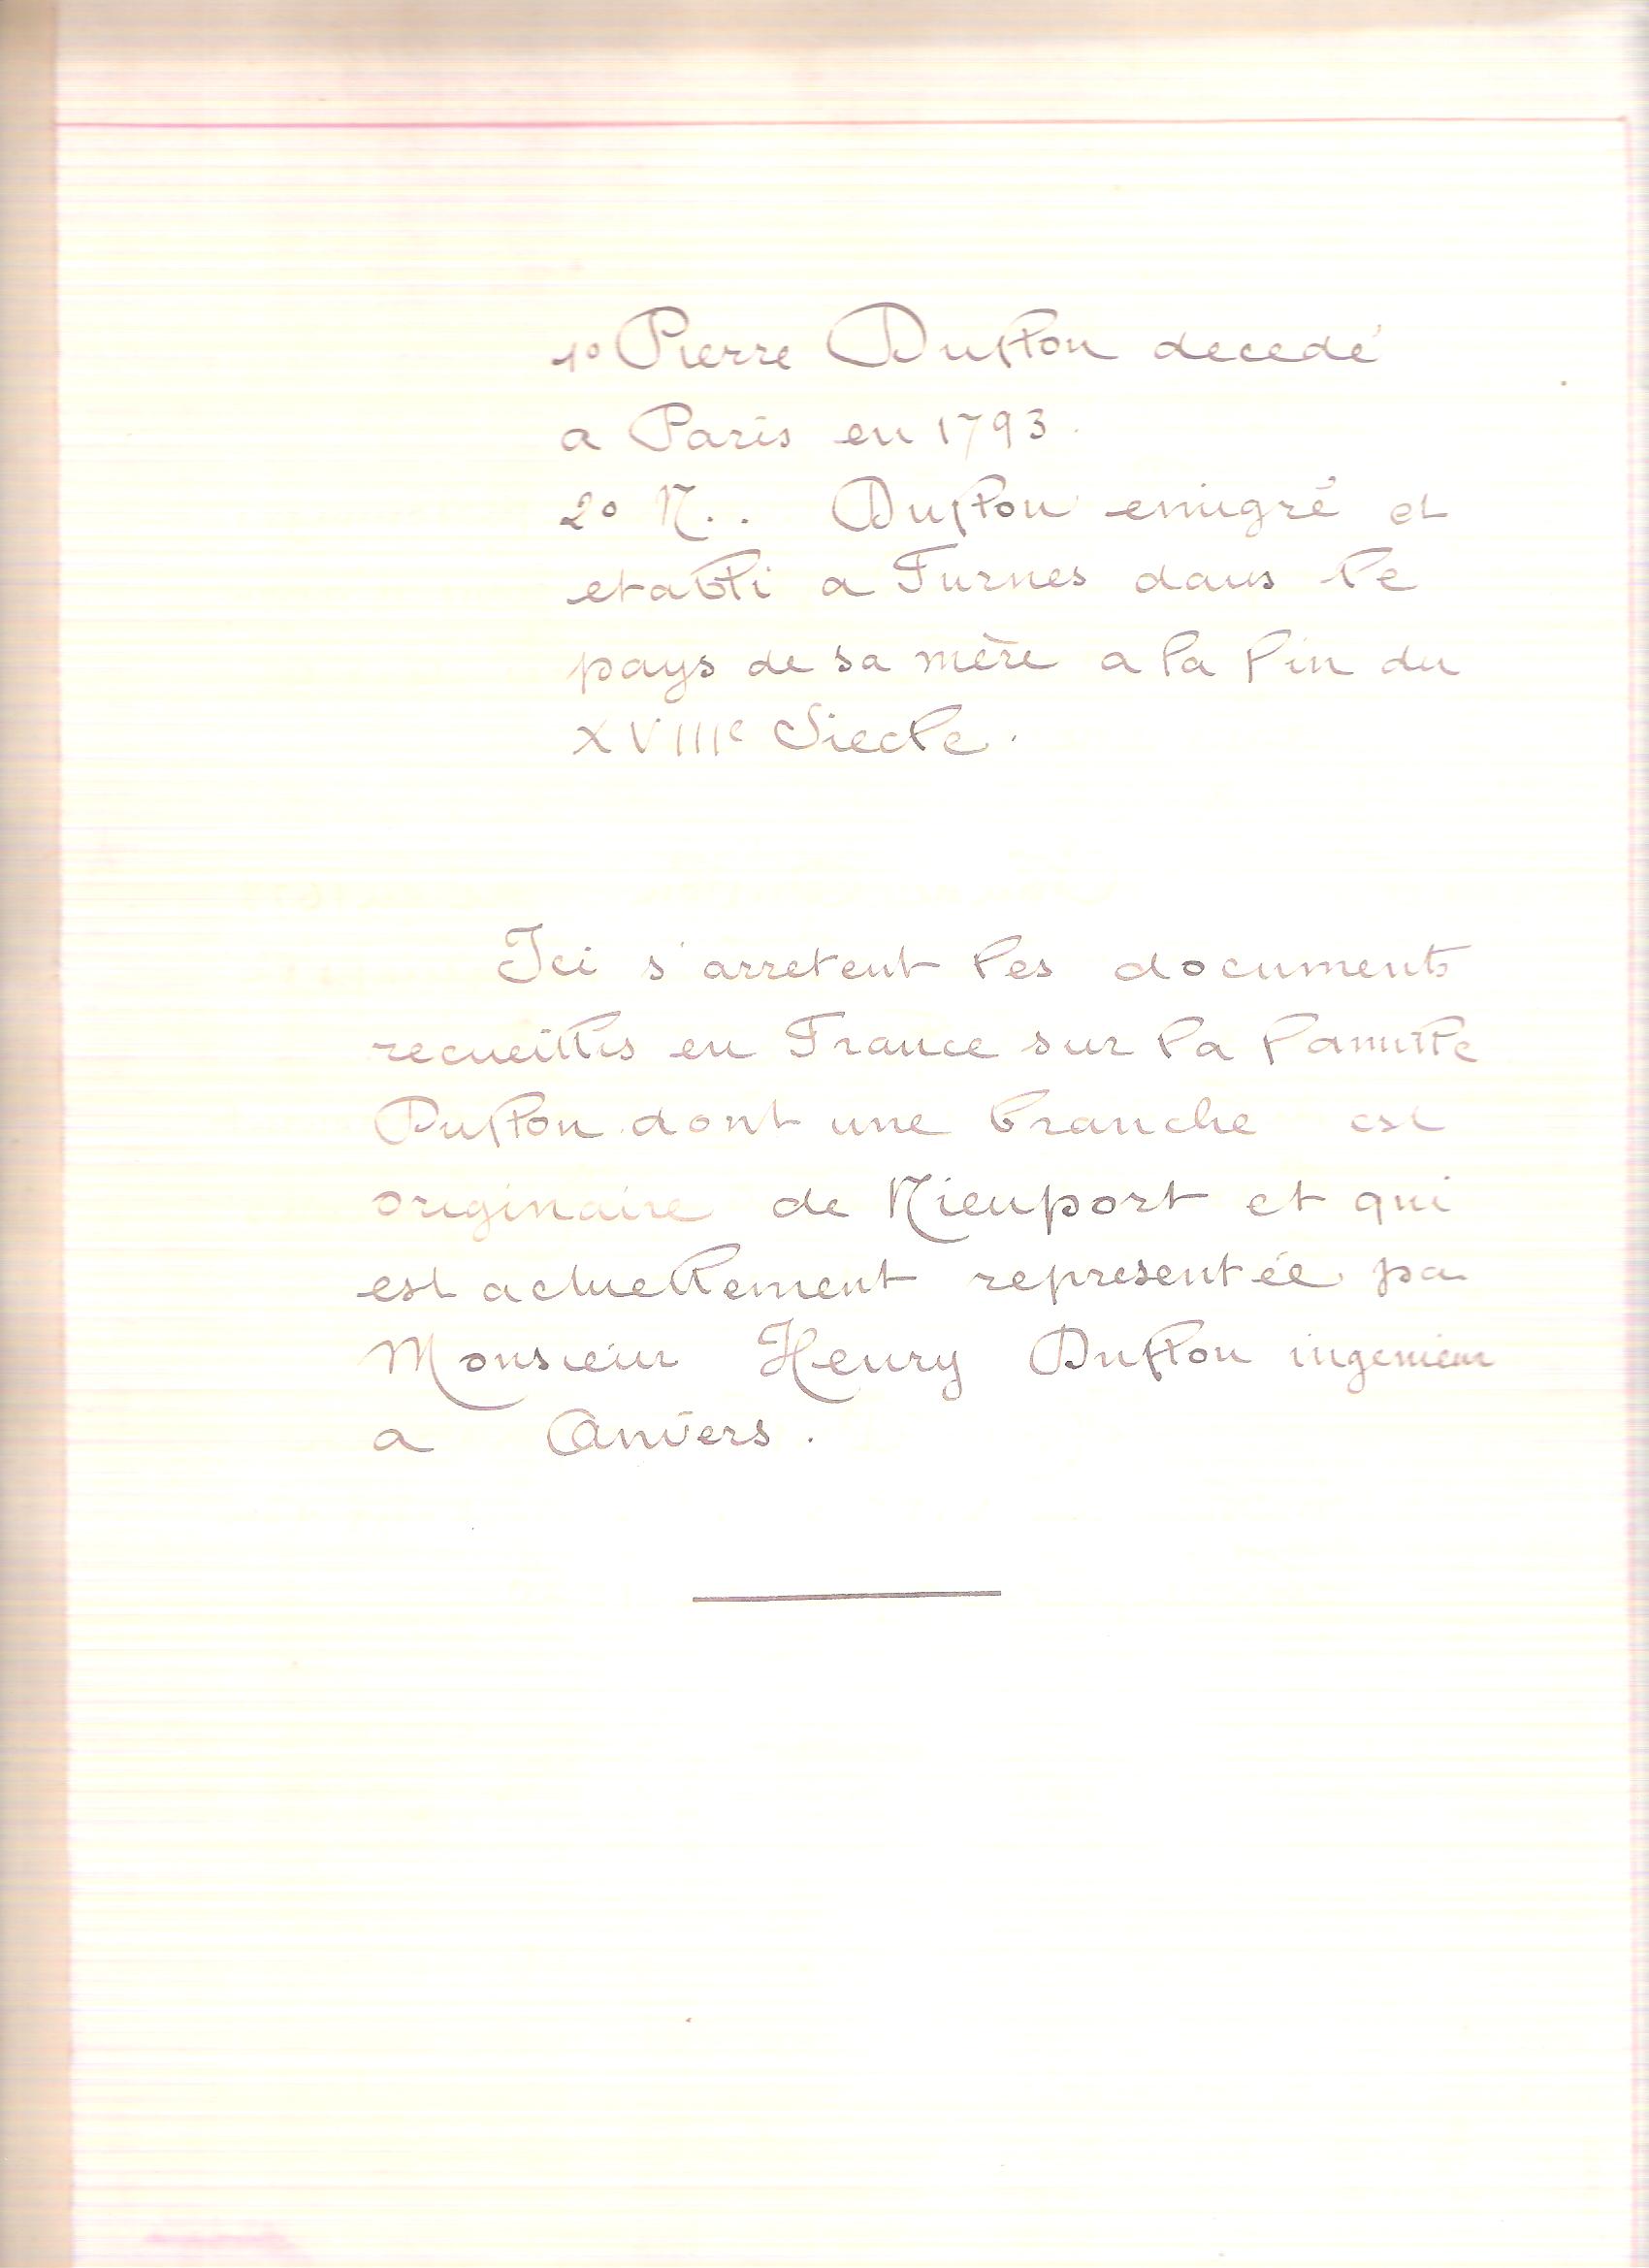 1º Pierre Duflou decedé
a Paris en 1793.
2º N.. Duflou emigré et
etabli a Furnes dans le
pays de sa mère a la fin du
XVIIIe Siecle.
Ici s'arretent les documents
recueillis en France sur la famille
Duflou dont une branche est
originaire de Nieuport et qui
est actuellement representée pa
Monsieur Henry Duflou ingenieur
a Anvers.